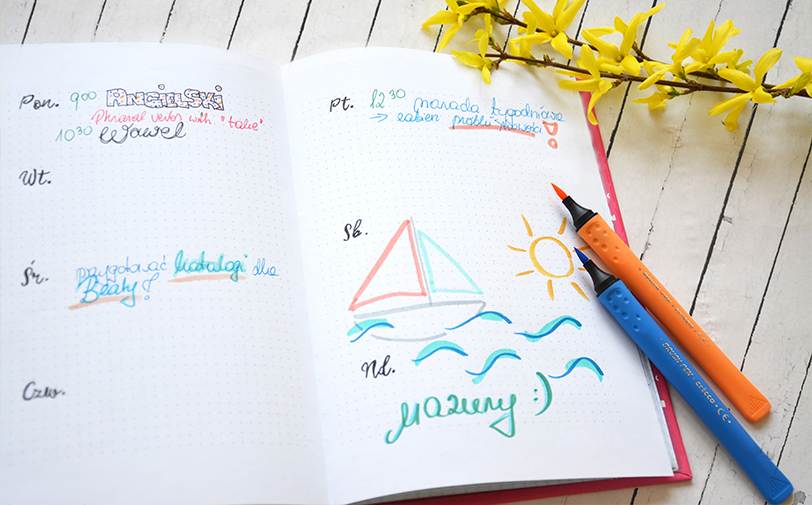 Pon. 9⁰⁰ ANGIELSKI
Phrasal verbs with "take"
10³⁰ Wawel
Wt.
Śr. przygotować katalogi dla
Beaty!
Czw.
Pt. 12³⁰ narada tygodniowa
→ zabrać próbki
Sb.
Nd.
Mazury :)